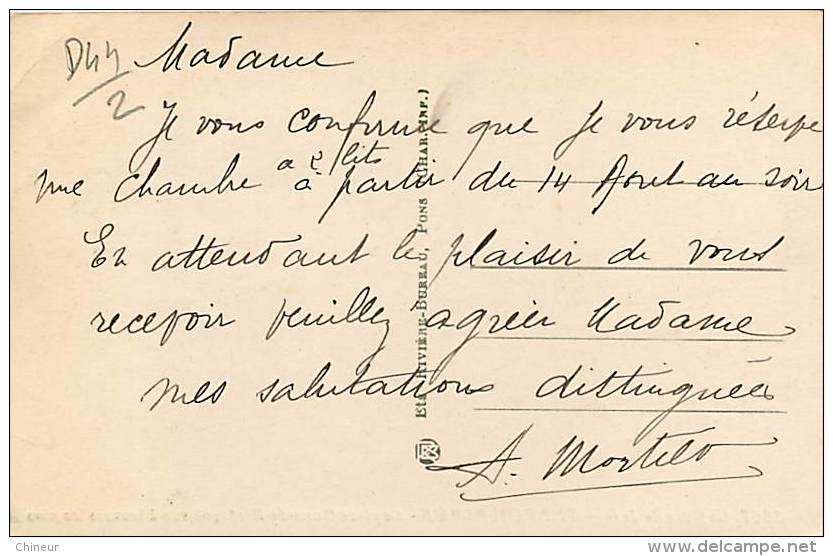 D44/2
Madame
Je vous confirme que je vous réserve
une chambre à partir du 14 Aout au soir
a 2 lits
En attendant le plaisir de vous
recevoir veuillez agréer Madame
mes salutations distinguées
A.
Ets RIVIÈRE-BUREAU, PONS (CHAR.-INF.)
Chineur
www.delcampe.net